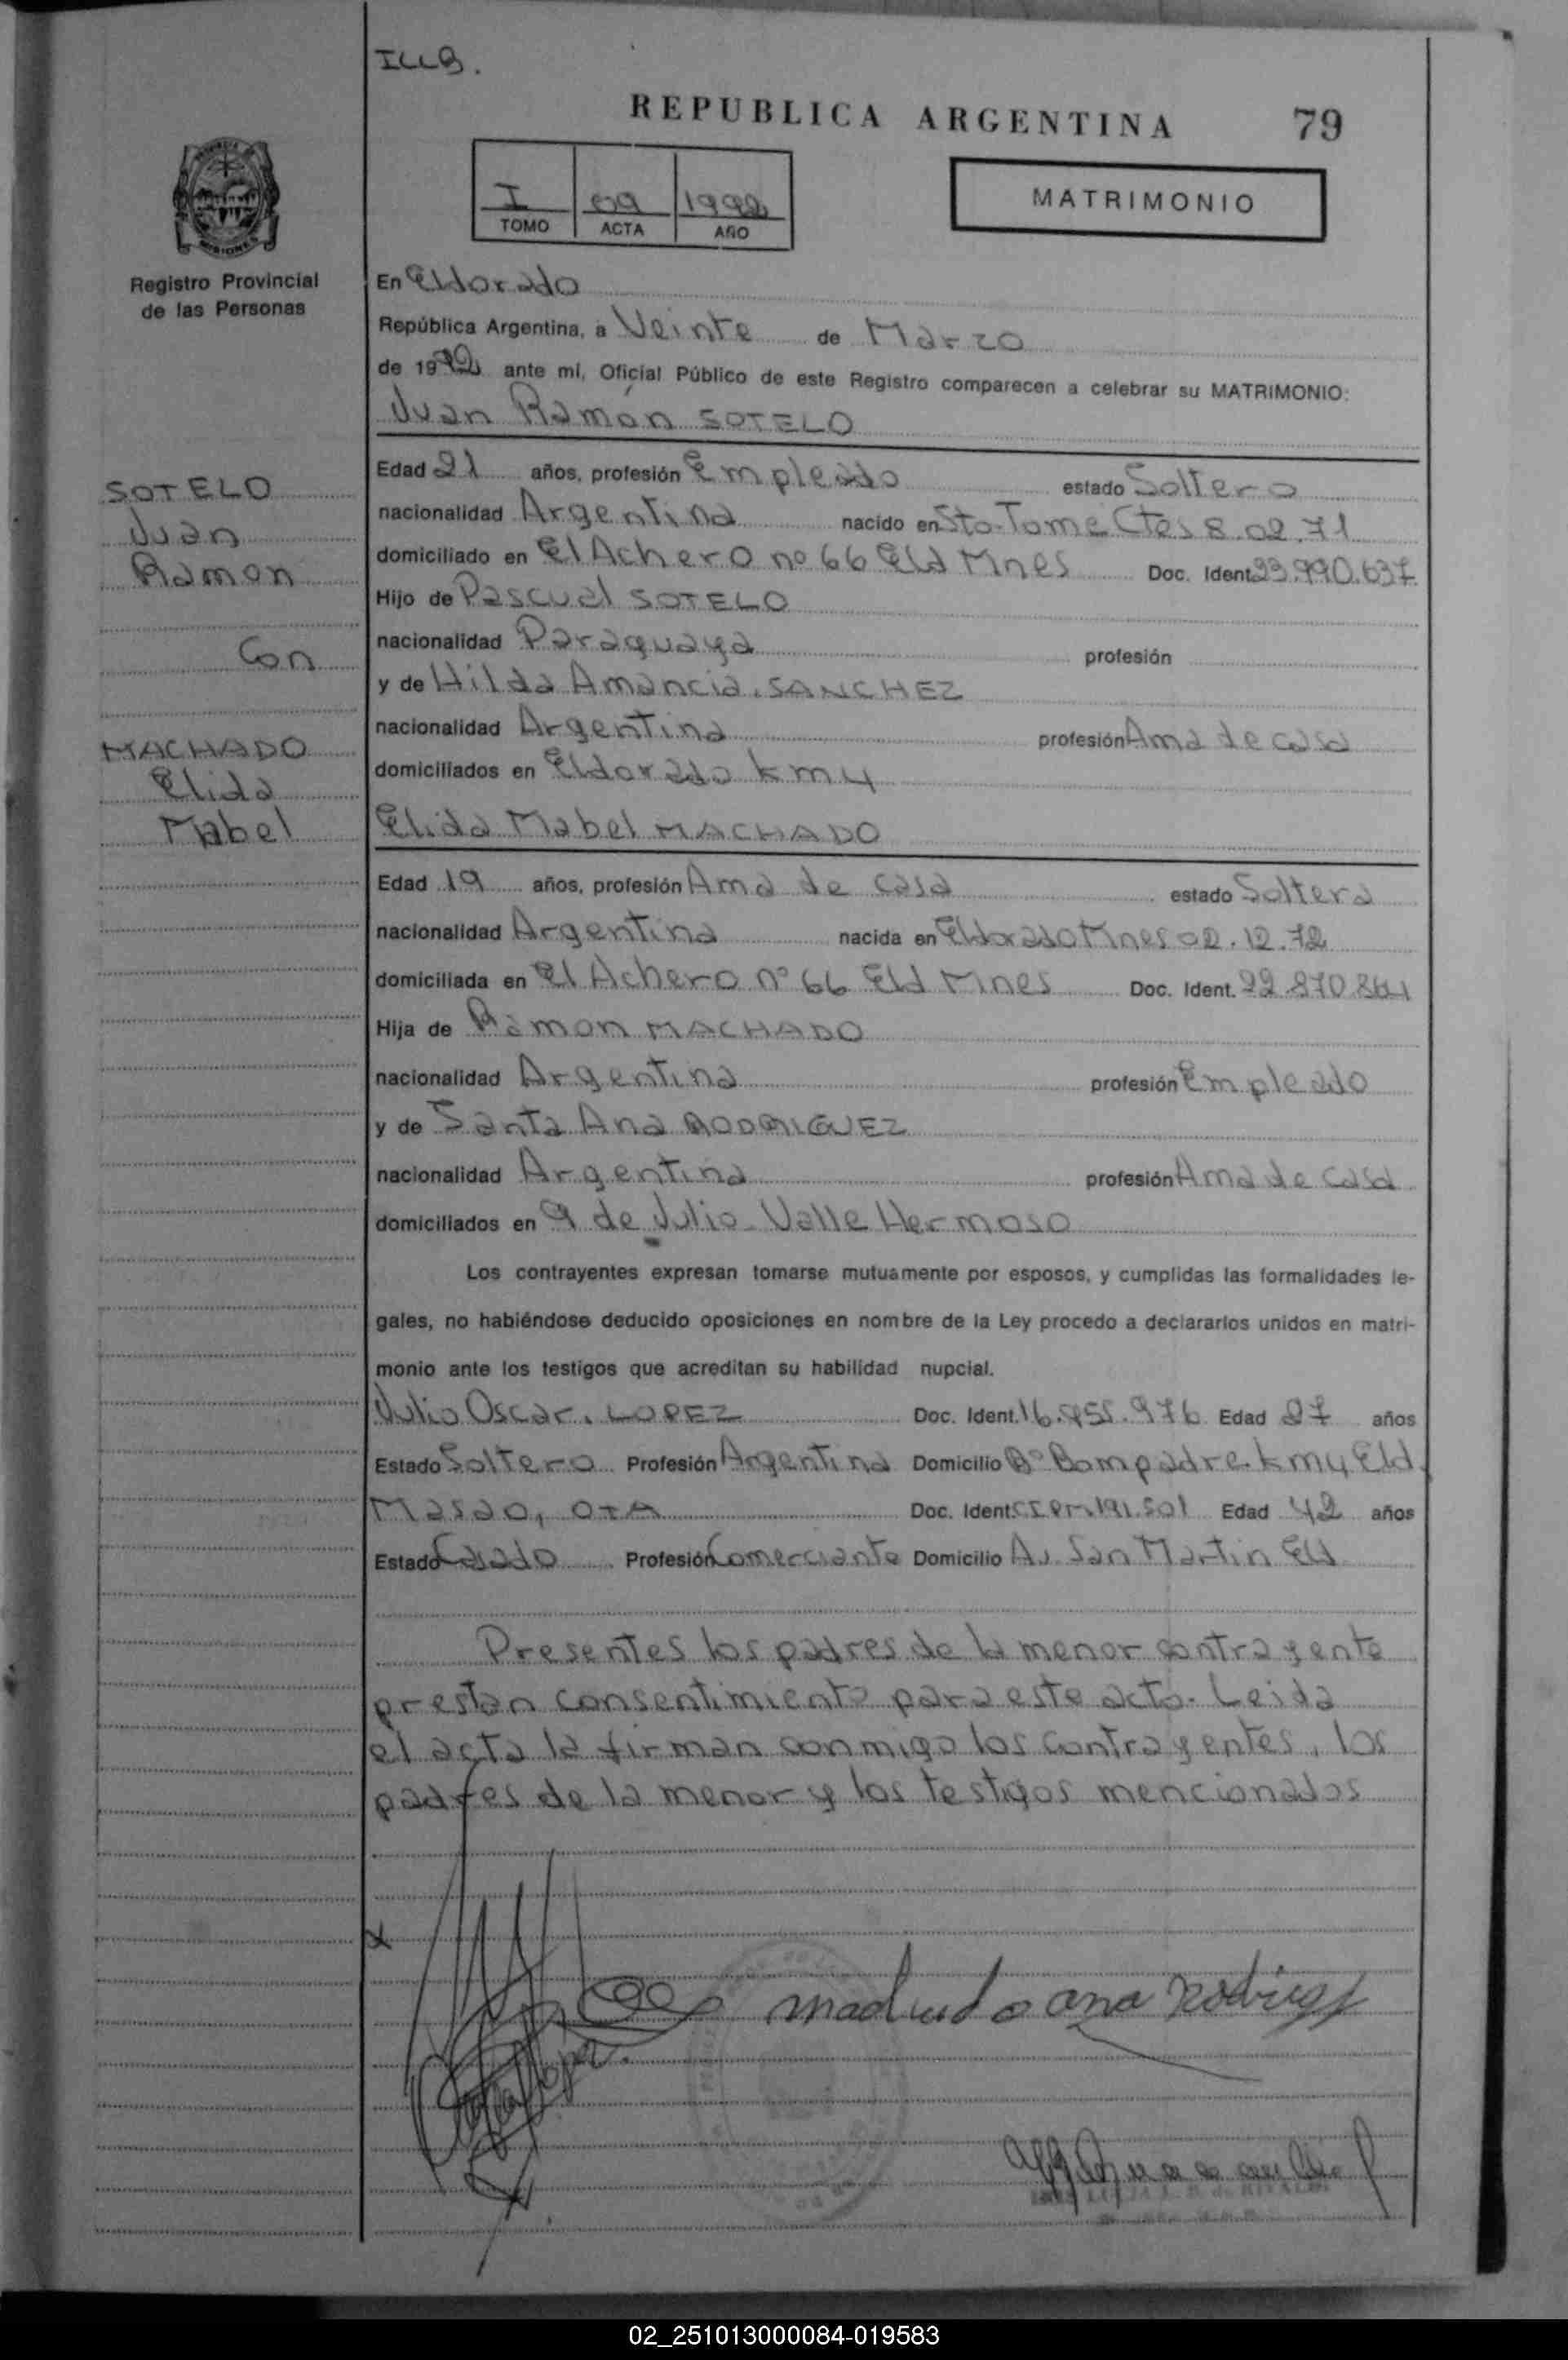 ILLB.
REPUBLICA ARGENTINA 79
I 69 1992
TOMO ACTA AÑO
MATRIMONIO
MISIONES
Registro Provincial
de las Personas
En Eldorado
República Argentina, a Veinte de Marzo
de 1992 ante mí, Oficial Público de este Registro comparecen a celebrar su MATRIMONIO:
Juan Ramón SOTELO
Edad 21 años, profesión Empleado estado Soltero
SOTELO
Juan
Ramon
Con
MACHADO
Elida
Mabel
nacionalidad Argentina nacido en Sto. Tome Ctes 8.02.71
domiciliado en El Achero nº 66 Eld Mnes Doc. Ident. 23.990.637
Hijo de Pascual SOTELO
nacionalidad Paraguaya profesión
y de Hilda Amancia. SANCHEZ
nacionalidad Argentina profesión Ama de casa
domiciliados en Eldorado km4
Elida Mabel MACHADO
Edad 19 años, profesión Ama de casa estado Soltera
nacionalidad Argentina nacida en Eldorado Mnes 02.12.72
domiciliada en El Achero nº 66 Eld Mnes Doc. Ident. 22.870.864
Hija de Ramon MACHADO
nacionalidad Argentina profesión Empleado
y de Santa Ana RODRIGUEZ
nacionalidad Argentina profesión Ama de casa
domiciliados en 9 de Julio - Valle Hermoso
Los contrayentes expresan tomarse mutuamente por esposos, y cumplidas las formalidades le-
gales, no habiéndose deducido oposiciones en nombre de la Ley procedo a declararlos unidos en matri-
monio ante los testigos que acreditan su habilidad nupcial.
Julio Oscar. LOPEZ Doc. Ident. Edad 27 años
Estado Soltero Profesión Argentina Domicilio Bº Bompadre. km4 Eld.
Masao, OTA Doc. Ident. Edad 42 años
Estado Casado Profesión Comerciante Domicilio Av San Martin Eld
Presentes los padres de la menor contrayente
prestan consentimiento para este acto. Leida
el acta la firman conmigo los contrayentes, los
padres de la menor y los testigos mencionados
machado ana rodrigz
02_251013000084-019583